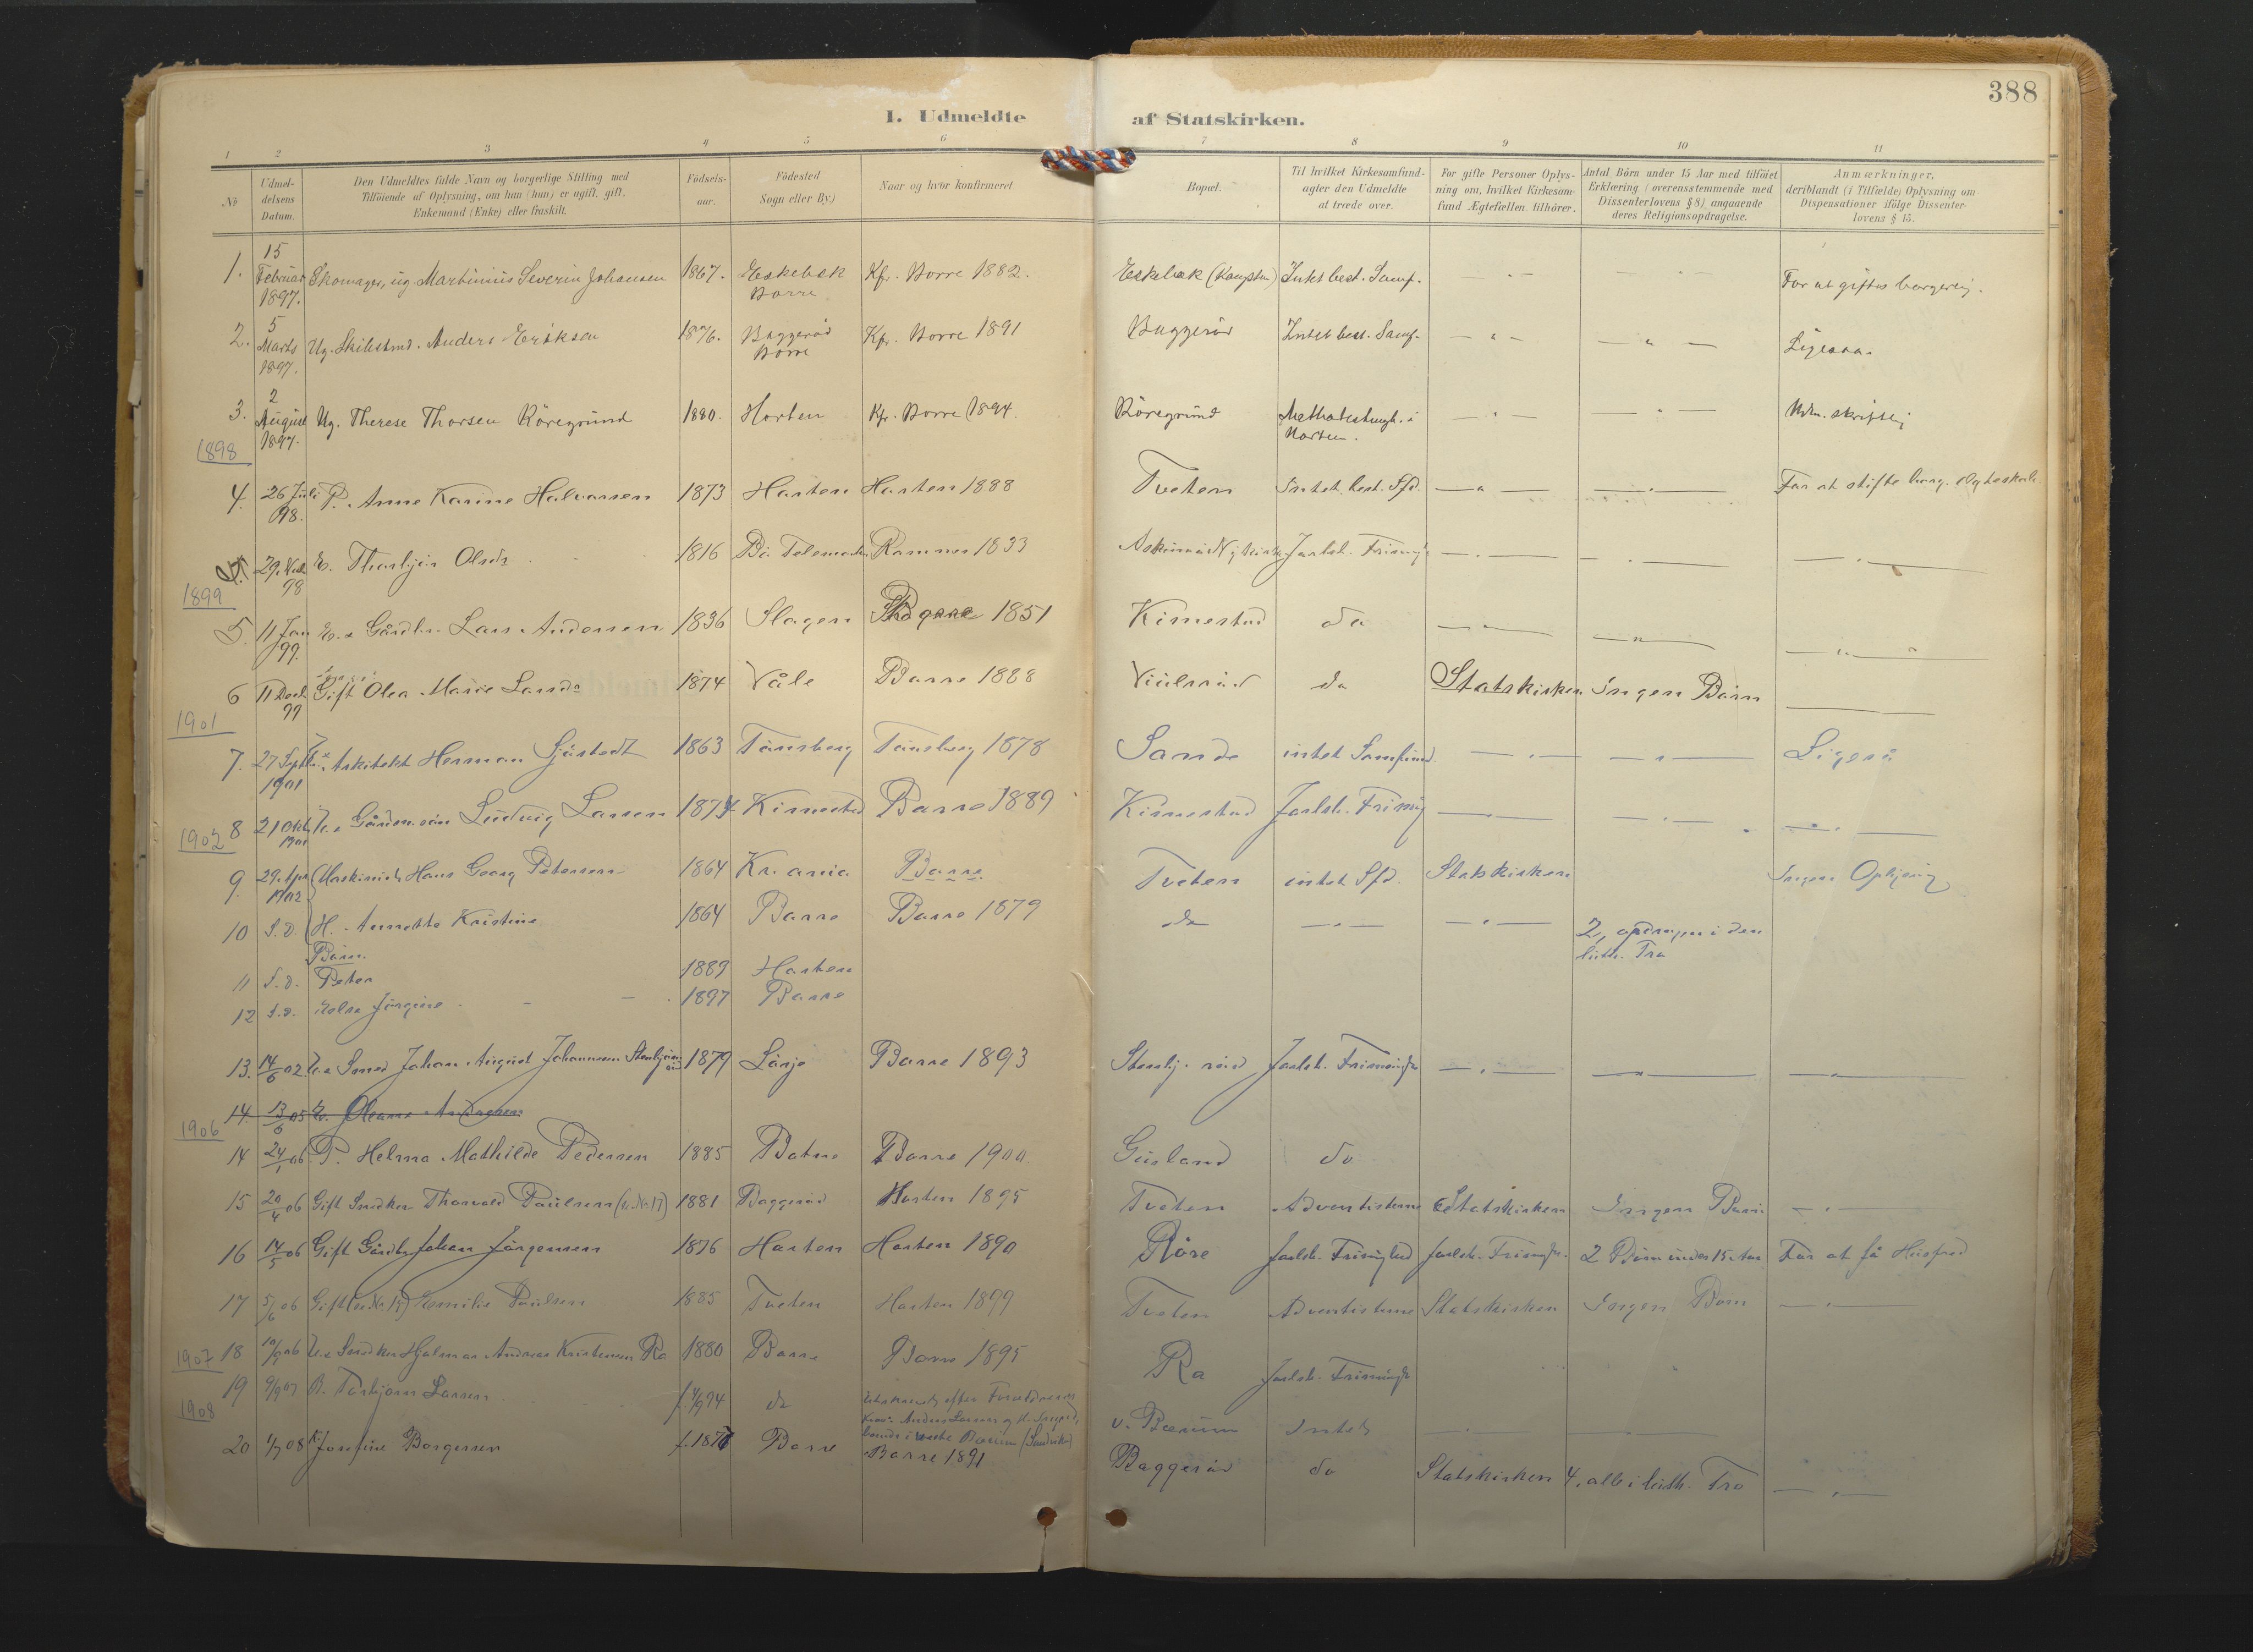 388
I. Udmeldte af Statskirken.
1 2 3 4 5 6 7 8 9 10 11
No
Udmeldelsens Datum.
Den Udmeldtes fulde Navn og borgerlige Stilling med
Tilföiende af Oplysning, om han (hun) er ugift, gift,
Enkemand (Enke) eller fraskilt.
Födselsaar.
Födested
Sogn eller By.)
Naar og hvor konfirmeret
Bopæl.
Til hvilket Kirkesamfund
agter den Udmeldte
at træde over.
For gifte Personer Oplys-
ning om, hvilket Kirkesam-
fund Ægtefællen tilhörer.
Antal Börn under 15 Aar med tilföiet
Erklæring (overensstemmende med
Dissenterlovens § 8) angaaende
deres Religionsopdragelse.
Anmærkninger,
deriblandt (i Tilfælde) Oplysning om
Dispensationer ifölge Dissenter-
lovens § 15.
1. 15 Februar 1897. Skomager, ug Martinius Severin Johansen 1867. Eskebek Borre Kfr. Borre 1882. Eskebæk Intet best. Samf. For at giftes borgerlig.
2. 5 Marts 1897. Ug. Anders Eriksen 1876. Baggeröd Borre Kfr. Borre 1891 Baggeröd Intet best. Samf. Ligesaa.
3. 2 August 1897. Ug. Therese Thorsen Röregrund 1880. Horten Kfr. Borre 1894. Röregrund i Horten. Udm. skriftlig
1898
4. 26 Juli 98. P. Anne Karine Halvorsen 1873 Horten Horten 1888 Tveten Intet best. Sfd. For at stifte borg. Egteskab
29. 98 E. Olsdr. 1816 1833 Nykirke Jarlsb. Frimigh
1899
5. 11 Jan 99. Lars Andersen 1836 Slagen 1851 Kimestad do
6 11 Decb 99 Gift Olea Marie Larsdr 1874 Våle Borre 1888 do Statskirken Ingen Börn
1901
7. 27 Sptb 1901 Arkitekt Herman Sjöstedt 1863 Tönsberg Tönsberg 1878 Sande intet Samfund Ligeså
8 21 Okt. 1901 Ludvig Larsen 1874 Kimestad Borre 1889 Kimestad Jarlsb. Frimgh
1902
9. 29. Apr 1902 Maskinist Hans Georg Petersen 1864 Kr. ania Borre Tveten intet Sfd. Statskirken Ingen
10 S.D. H. Annette Kristine 1864 Borre Borre 1879 do 2, opdrages i den luth. Tro
Börn.
11 S.d. Peter 1889 Horten
12 S.d. Jörgine 1897 Borre
13. 14/6 02. Smed Johan August Johannesen 1879 Borre 1893 Jarlsb. Frimenigh
14. 13/6 05 E. Oleanne Andersen
1906
14 24/1 06 P. Helma Mathilde Pedersen 1885 Botne Borre 1900. do
15 20/4 06 Gift Snedker Thorvald Paulsen (u. No. 17) 1881 Baggeröd Horten 1895 Tveten Adventisterne Statskirken Ingen Barn
16 14/5 06 Gift Gårdb. Johan Jörgensen 1876 Horten Horten 1890 Röre Jarlsb. Frimighed Jarlsb. Frimigh. 2 Börn under 15 Aar For at få Husfred
17 5/6 06 Gift (u. No. 15) Emilie Paulsen 1885 Tveten Horten 1899 Tveten Adventisterne Statskirken Ingen Börn
1907
18 10/9 06 U. Snedker Hjalmar Andreas Kristensen Ra 1880 Borre Borre 1895 Ra Jarlsb. Frimenigh
19 9/9 07 Torbjörn Larsen f. 4/9 94 do
Intet
1908
20 1/7 08 K. Josefine Borgersen f. 1877 Borre Borre 1891 Baggeröd do Statskirken 4, alle i luth. Tro